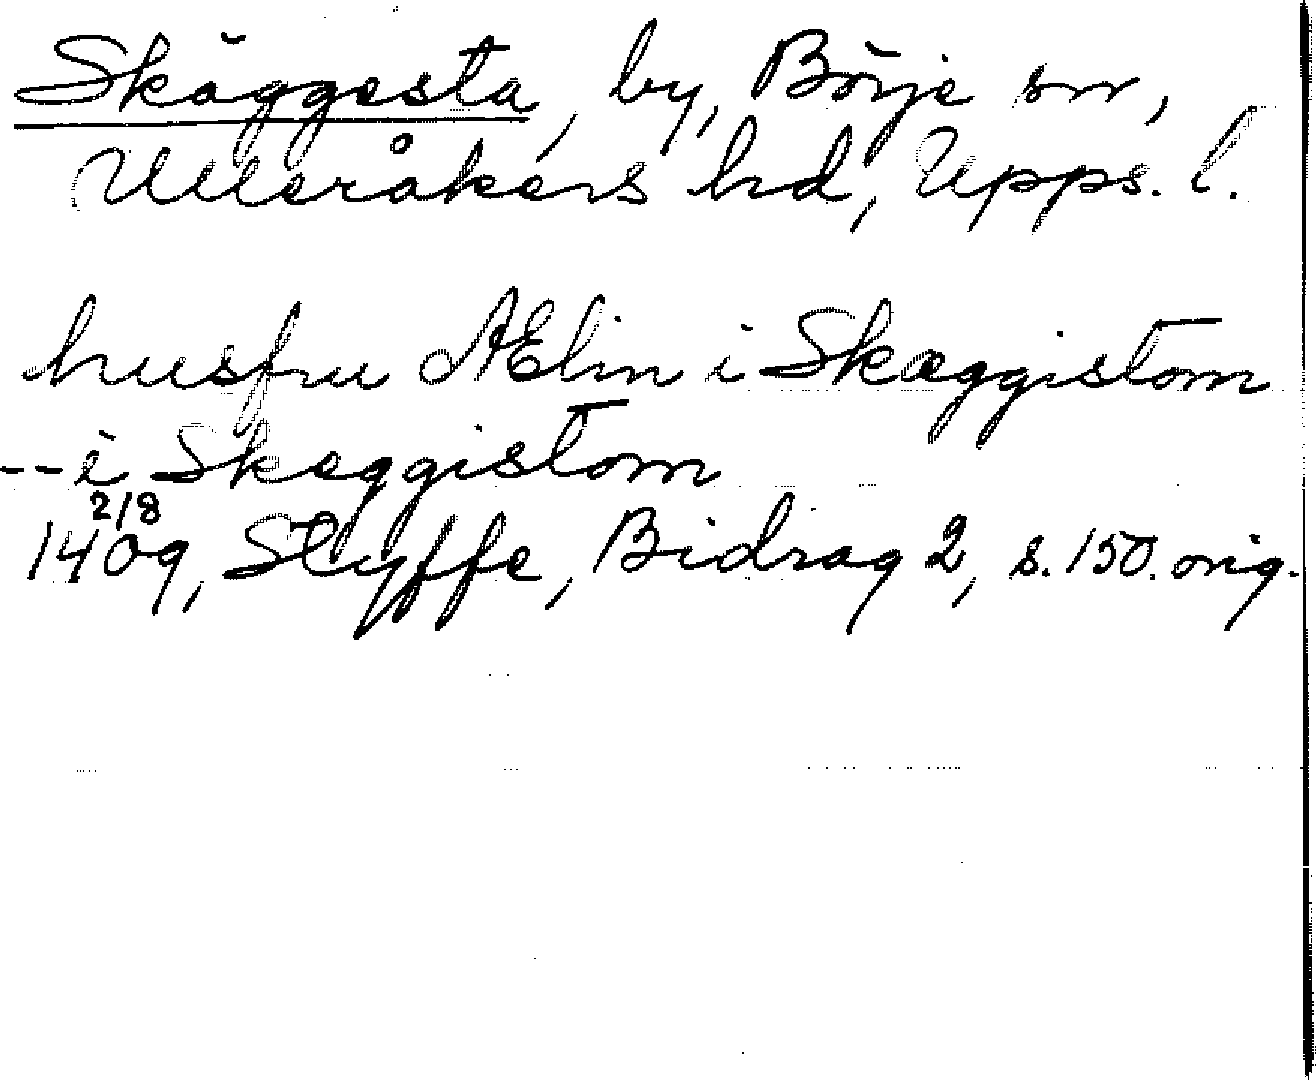 Skäggesta, by, Börje sn,
Ulleråkers hd, Upps. l.
husfru AElin i Skæggistom
-- i Skeggistom
2/8
1409, Styffe, Bidrag 2, s. 150. orig.